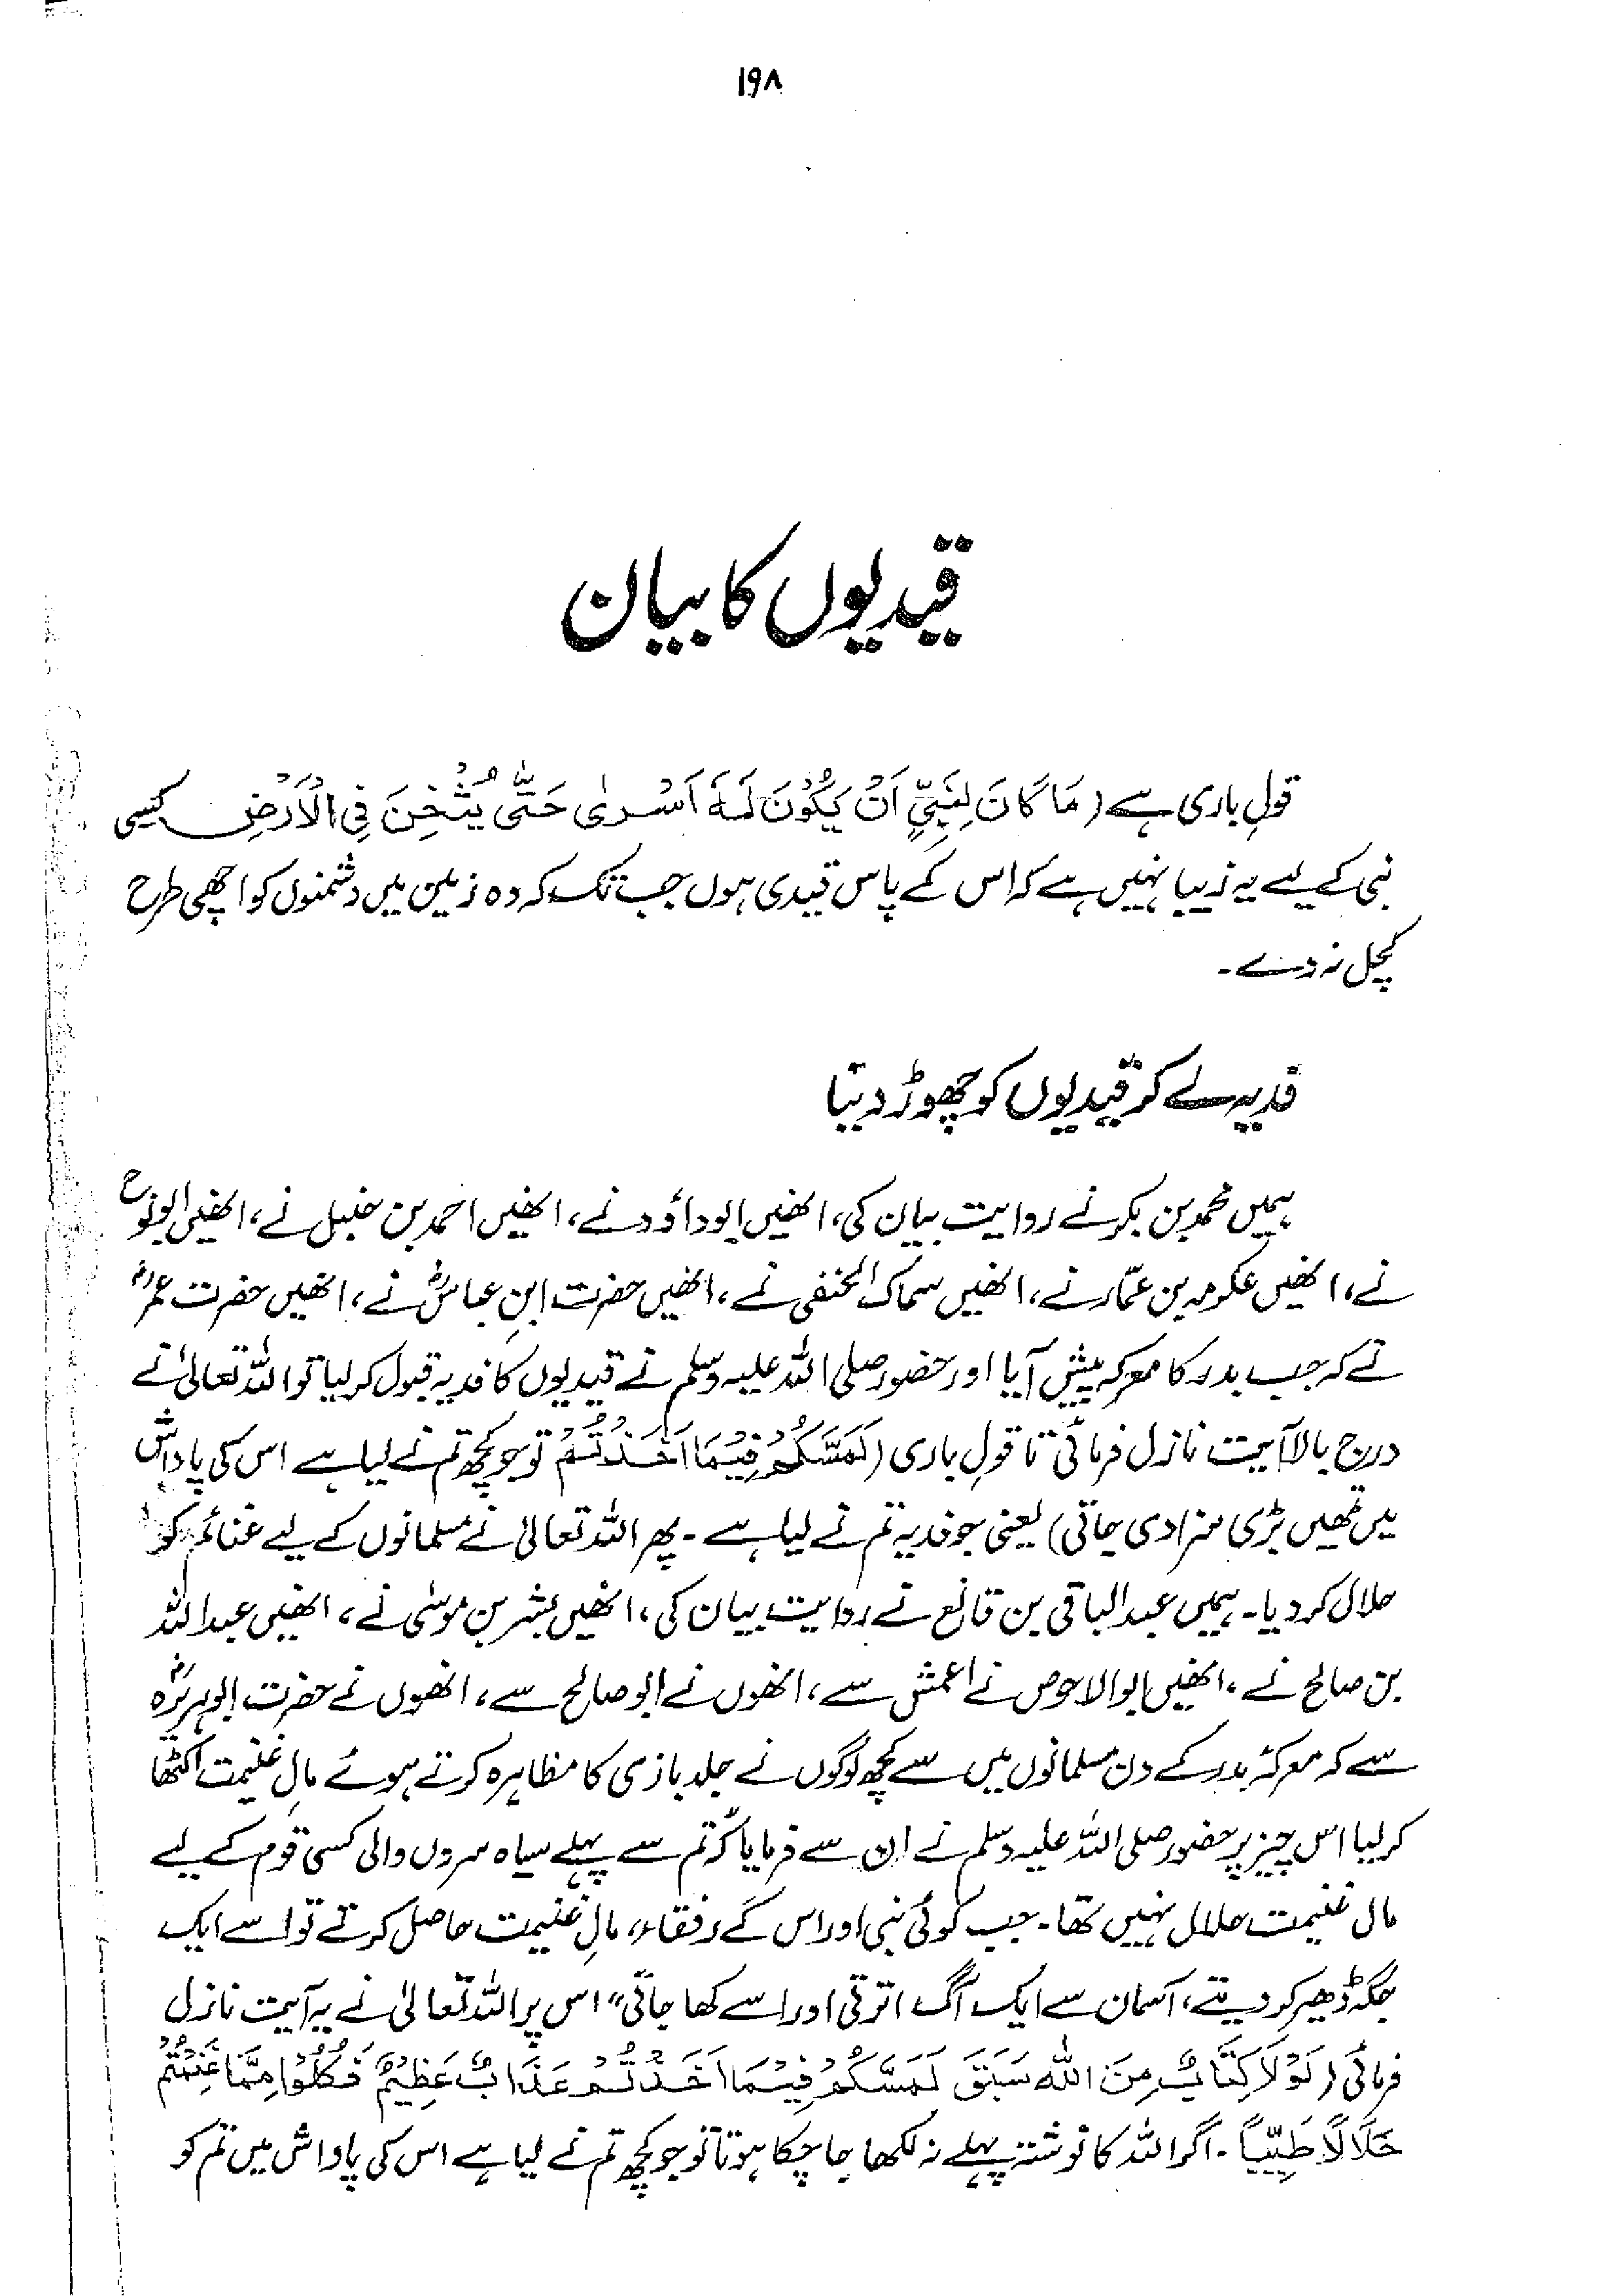 ۱۹۸
قیدیوں کا بیان
قولِ باری ہے (مَا كَانَ لِنَبِيٍّ اَنْ يَّكُوْنَ لَهٗ اَسْرٰى حَتّٰى يُثْخِنَ فِى الْاَرْضِ کسی
نبی کے لیے یہ زیبا نہیں ہے کہ اس کے پاس قیدی ہوں جب تک کہ وہ زمین میں دشمنوں کو اچھی طرح
کچل نہ دے۔
فدیہ لے کر قیدیوں کو چھوڑ دینا
ہمیں محمد بن بکر نے روایت بیان کی، انھیں ابوداؤد نے، انھیں احمد بن حنبل نے، انھیں ابونوح
نے، انھیں عکرمہ بن عمّار نے، انھیں سماک الحنفی نے، انھیں حضرت ابنِ عباسؓ نے، انھیں حضرت عمرؓ
نے کہ جب بدر کا معرکہ پیش آیا اور حضور صلی اللہ علیہ وسلم نے قیدیوں کا فدیہ قبول کر لیا تو اللہ تعالیٰ نے
درج بالا آیت نازل فرمائی تا قولِ باری (لَمَسَّكُمْ فِيْمَا اَخَذْتُمْ تو جو کچھ تم نے لیا ہے اس کی پاداش
میں تمھیں بڑی سزا دی جاتی) یعنی جو فدیہ تم نے لیا ہے۔ پھر اللہ تعالیٰ نے مسلمانوں کے لیے غنائم کو
حلال کر دیا۔ ہمیں عبدالباقی بن قانع نے روایت بیان کی، انھیں بشر بن موسٰی نے، انھیں عبداللہ
بن صالح نے، انھیں ابوالاحوص نے اعمش سے، انھوں نے ابو صالح سے، انھوں نے حضرت ابوہریرہؓ
سے کہ معرکۂ بدر کے دن مسلمانوں میں سے کچھ لوگوں نے جلد بازی کا مظاہرہ کرتے ہوئے مالِ غنیمت اکٹھا
کر لیا اس چیز پر حضور صلی اللہ علیہ وسلم نے ان سے فرمایا کہ تم سے پہلے سیاہ سروں والی کسی قوم کے لیے
مال غنیمت حلال نہیں تھا۔ جب کوئی نبی اور اس کے رفقاء، مالِ غنیمت حاصل کرتے تو اسے ایک
جگہ ڈھیر کر دیتے، آسمان سے ایک آگ اترتی اور اسے کھا جاتی" اس پر اللہ تعالیٰ نے یہ آیت نازل
فرمائی (لَوْلَا كِتَابٌ مِنَ اللهِ سَبَقَ لَمَسَّكُمْ فِيْمَا اَخَذْتُمْ عَذَابٌ عَظِيْمٌ فَكُلُوْا مِمَّا غَنِمْتُمْ
حَلَالًا طَيِّبًا۔ اگر اللہ کا نوشتہ پہلے نہ لکھا جا چکا ہوتا تو جو کچھ تم نے لیا ہے اس کی پاداش میں تم کو